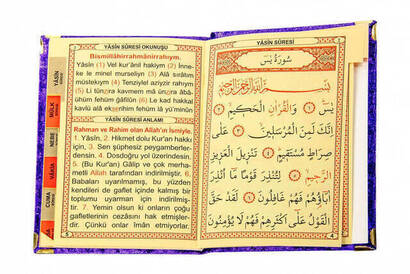 YÂSÎN SÛRESİ OKUNUŞU
Bismillâhirrahmânirrahıym.
Yâsîn (1) Vel kur'ânil hakiym (2) İnne-
ke le minel murseliyn (3) Alâ sırâtım
müstekıym (4) Tenziylel aziyzir rahıym
(5) Li tünzira kavmem mâ ünzira âbâ-
ühüm fehüm ğâfilûn (6) Le kad hakkal
kavlü alâ ekserihim fehüm lâ yü'minûn
YÂSÎN SÛRESİ ANLAMI
Rahman ve Rahim olan Allah'ın İsmiyle.
1. Yâsîn, 2. Hikmet dolu Kur'an hakkı
için, 3. Sen şüphesiz peygamberler-
densin. 4. Dosdoğru yol üzerindesin.
5. (Bu Kur'an) Gâlip ve çok merha-
metli Allah tarafından indirilmiştir. 6.
Babaları uyarılmamış, bu yüzden
kendileri de gaflet içinde kalmış bir
toplumu uyarman için indirilmiş-
tir. 7. Yemin olsun ki onların çoğu
gafletlerinin cezasını hak etmişler-
dir. Çünkü onlar îman etmiyorlar.
YÂSÎN
MÜLK
NEBE
VÂKIA
CUMA
YÂSÎN SÛRESİ
سُورَةُ يٰسٓ
بِسْمِ اللّٰهِ الرَّحْمٰنِ الرَّحِيمِ
يٰسٓ ﴿١﴾ وَالْقُرْاٰنِ الْحَكِيمِ ﴿٢﴾
اِنَّكَ لَمِنَ الْمُرْسَلِينَ ﴿٣﴾ عَلٰى
صِرَاطٍ مُسْتَقِيمٍ ﴿٤﴾ تَنْزِيلَ الْعَزِيزِ
الرَّحِيمِ ﴿٥﴾ لِتُنْذِرَ قَوْمًا مَٓا اُنْذِرَ
اٰبَٓاؤُهُمْ فَهُمْ غَافِلُونَ ﴿٦﴾ لَقَدْ حَقَّ
الْقَوْلُ عَلٰٓى اَكْثَرِهِمْ فَهُمْ لَا يُؤْمِنُونَ